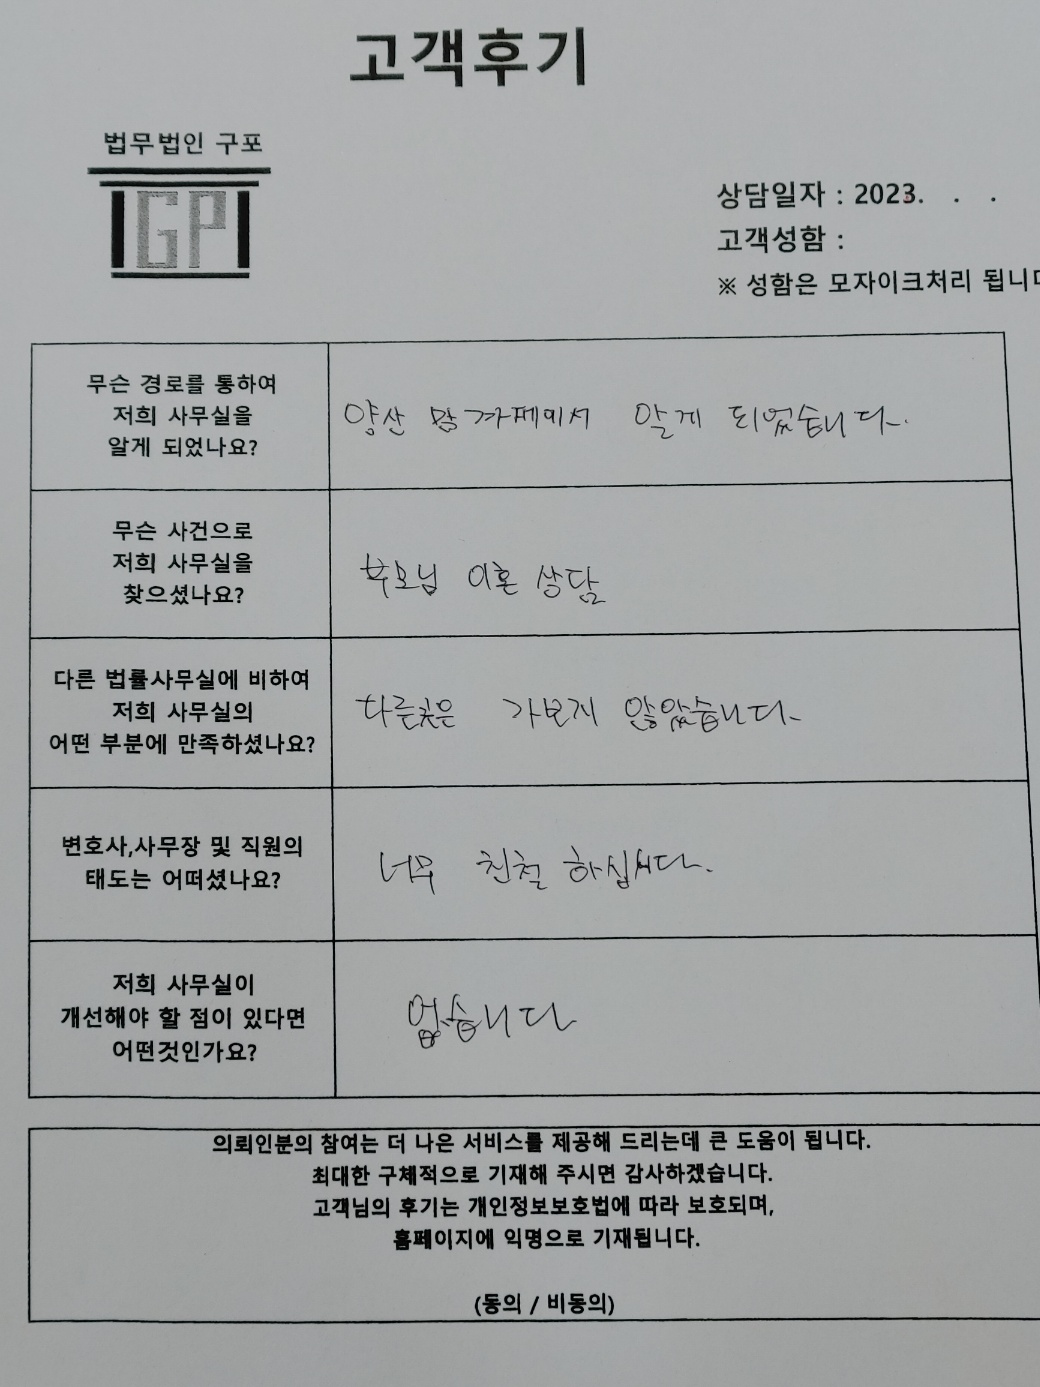 고객후기
법무법인 구포
IGPI
상담일자 : 2023. . .
고객성함 :
※ 성함은 모자이크처리 됩니다
무슨 경로를 통하여
저희 사무실을
알게 되었나요?
양산 맘 까페에서 알게 되었습니다.
무슨 사건으로
저희 사무실을
찾으셨나요?
부모님 이혼 상담
다른 법률사무실에 비하여
저희 사무실의
어떤 부분에 만족하셨나요?
다른곳은 가보지 않았습니다.
변호사,사무장 및 직원의
태도는 어떠셨나요?
너무 친절 하십니다.
저희 사무실이
개선해야 할 점이 있다면
어떤것인가요?
없습니다
의뢰인분의 참여는 더 나은 서비스를 제공해 드리는데 큰 도움이 됩니다.
최대한 구체적으로 기재해 주시면 감사하겠습니다.
고객님의 후기는 개인정보보호법에 따라 보호되며,
홈페이지에 익명으로 기재됩니다.
(동의 / 비동의)